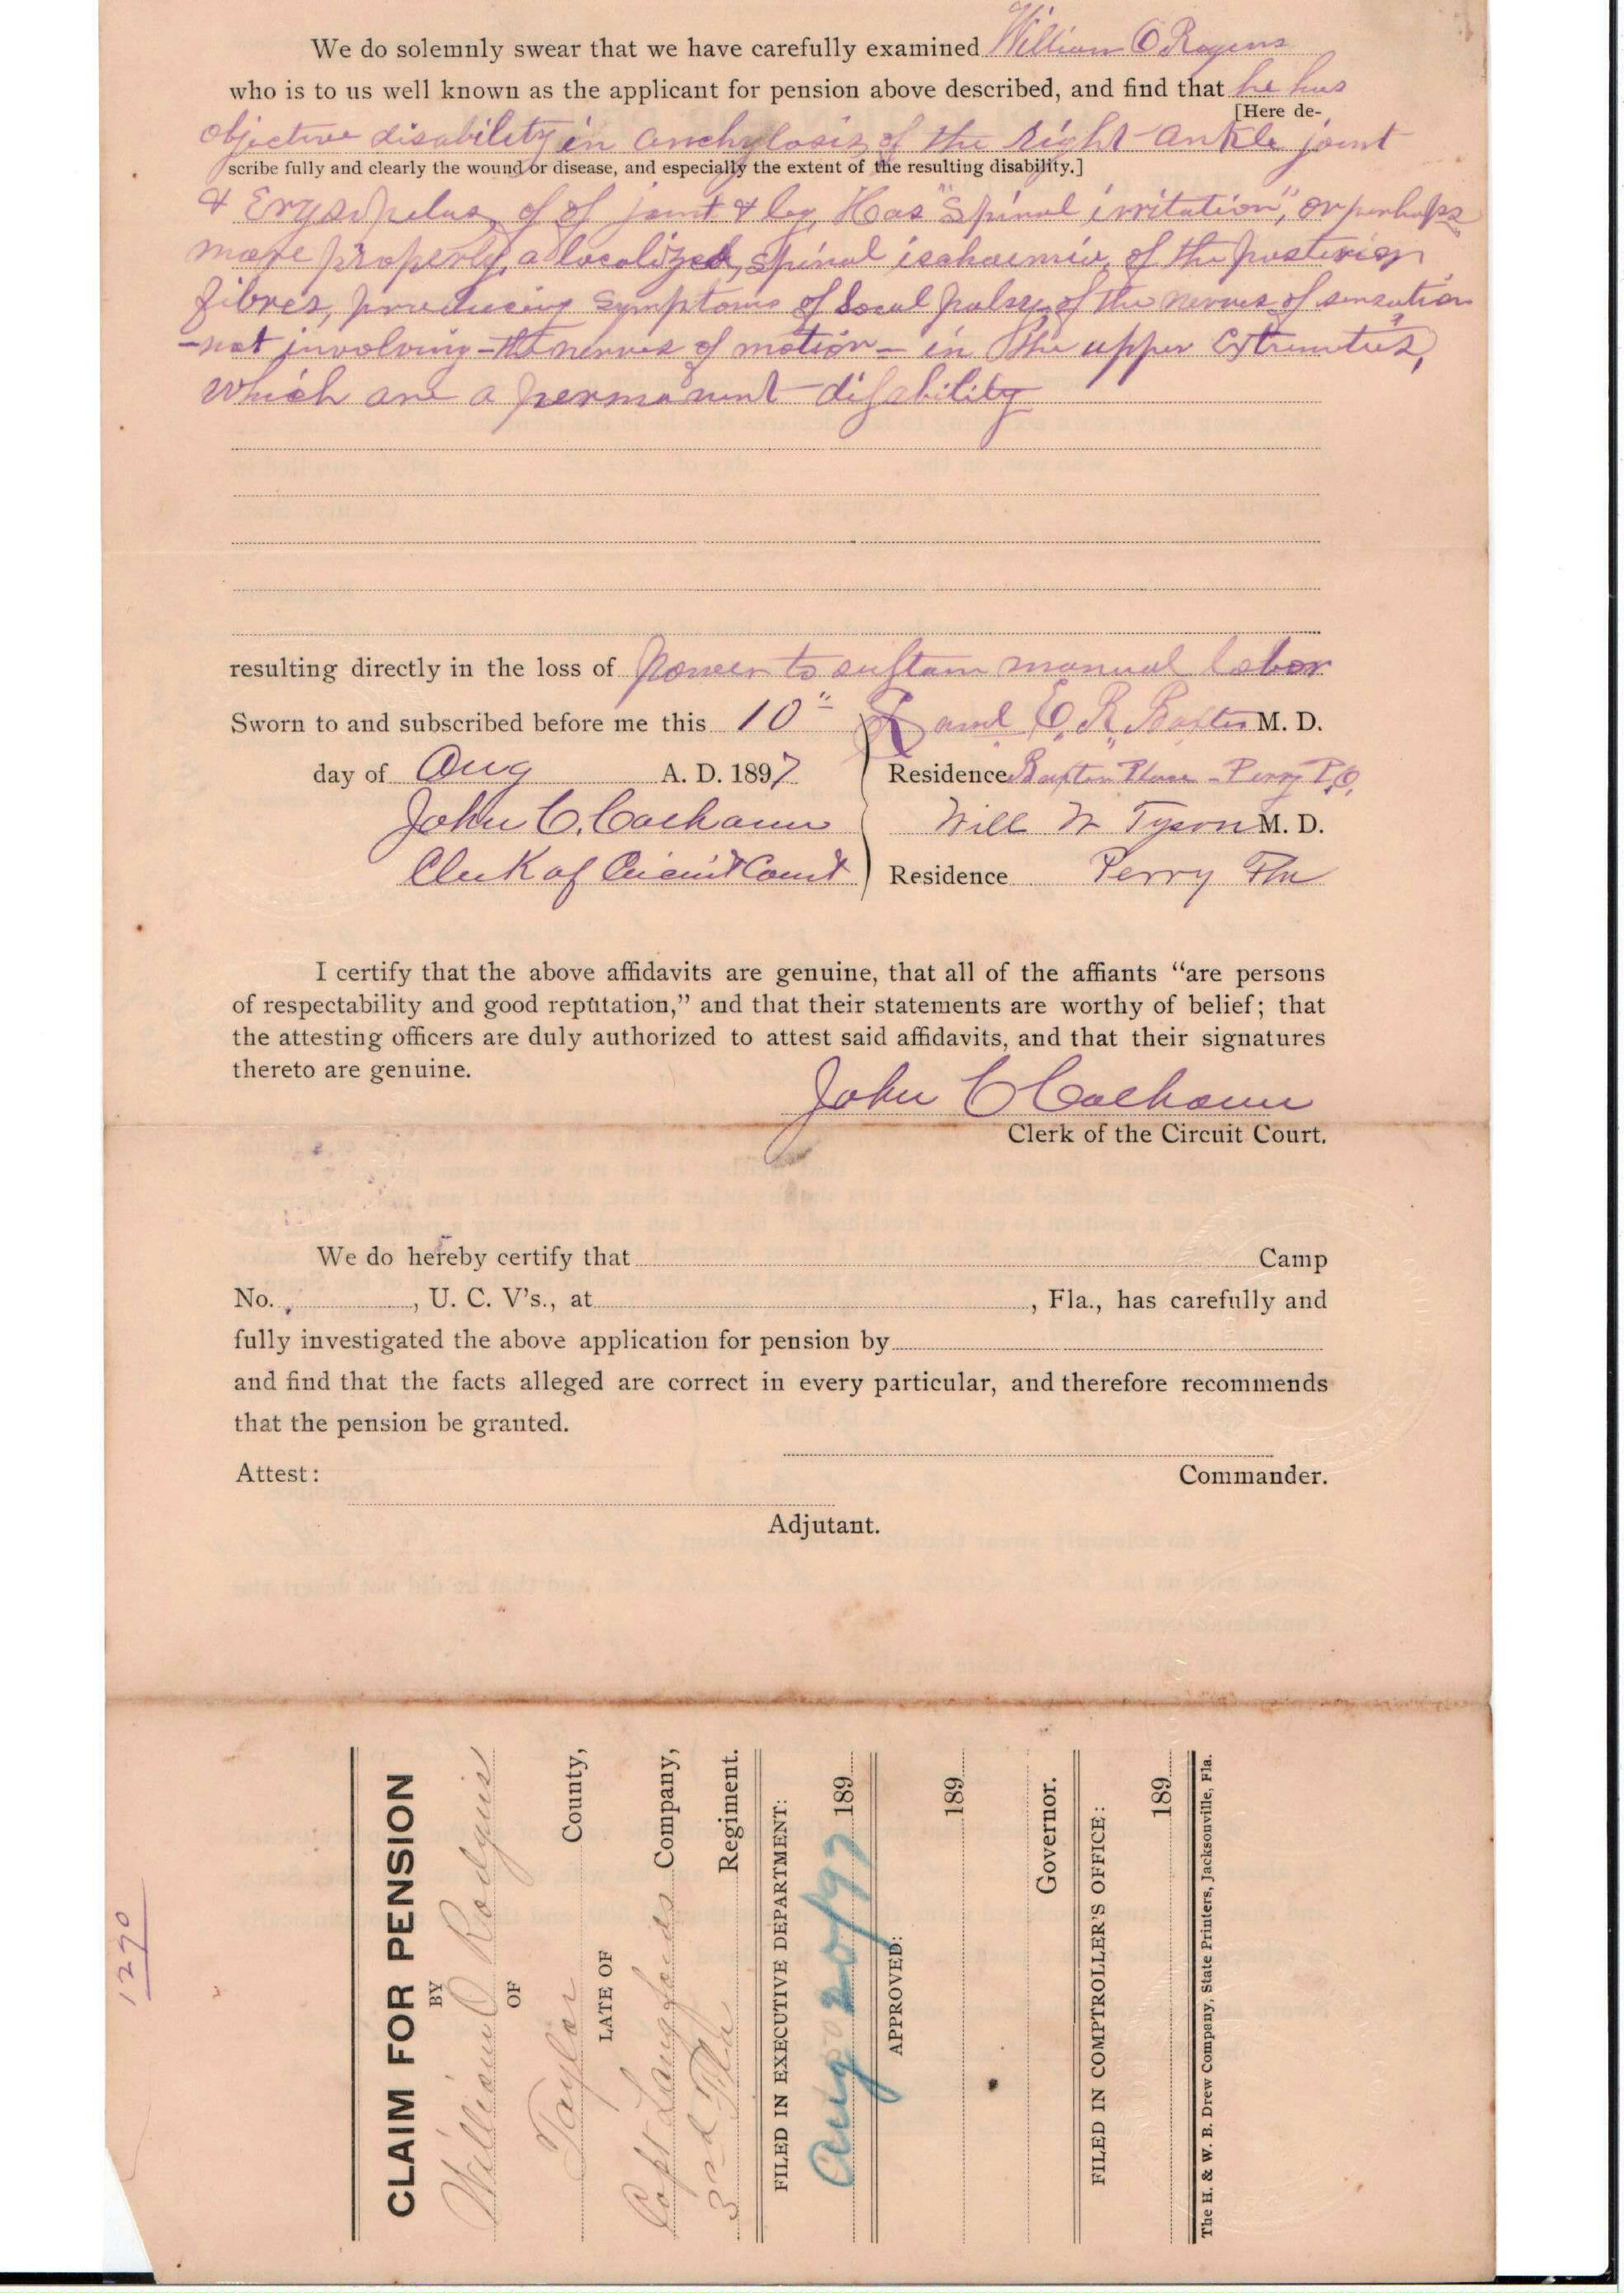 We do solemnly swear that we have carefully examined William O Rogers
who is to us well known as the applicant for pension above described, and find that he has
[Here de-
objective disability in anchylosis of the right ankle joint
scribe fully and clearly the wound or disease, and especially the extent of the resulting disability.]
& Erysipelas of of joint & leg, Has "Spinal irritation", or perhaps
more properly, a localized, spinal ischaemia, of the posterior
fibres, producing symptoms of local palsy of the nerves of sensation
-not involving-the nerves of motion- in the upper extremities,
which are a permanent disability
resulting directly in the loss of power to sustain manual labor
Sworn to and subscribed before me this 10" and M. D.
day of Aug A. D. 1897 Residence Perry P.O.
John C. Calhoun Will W Tyson M. D.
Clerk of Circuit Court Residence Perry Fla
I certify that the above affidavits are genuine, that all of the affiants “are persons
of respectability and good reputation,” and that their statements are worthy of belief; that
the attesting officers are duly authorized to attest said affidavits, and that their signatures
thereto are genuine.
John C Calhoun
Clerk of the Circuit Court.
We do hereby certify that Camp
No. , U. C. V's., at , Fla., has carefully and
fully investigated the above application for pension by
and find that the facts alleged are correct in every particular, and therefore recommends
that the pension be granted.
Attest: Commander.
Adjutant.
1270
CLAIM FOR PENSION
BY
William O Rodgers
OF
Taylor County,
LATE OF
Capt Langfords Company,
3rd Fla Regiment.
FILED IN EXECUTIVE DEPARTMENT:
Aug 20/97 189
APPROVED:
189
Governor.
FILED IN COMPTROLLER'S OFFICE:
189
The H. & W. B. Drew Company, State Printers, Jacksonville, Fla.